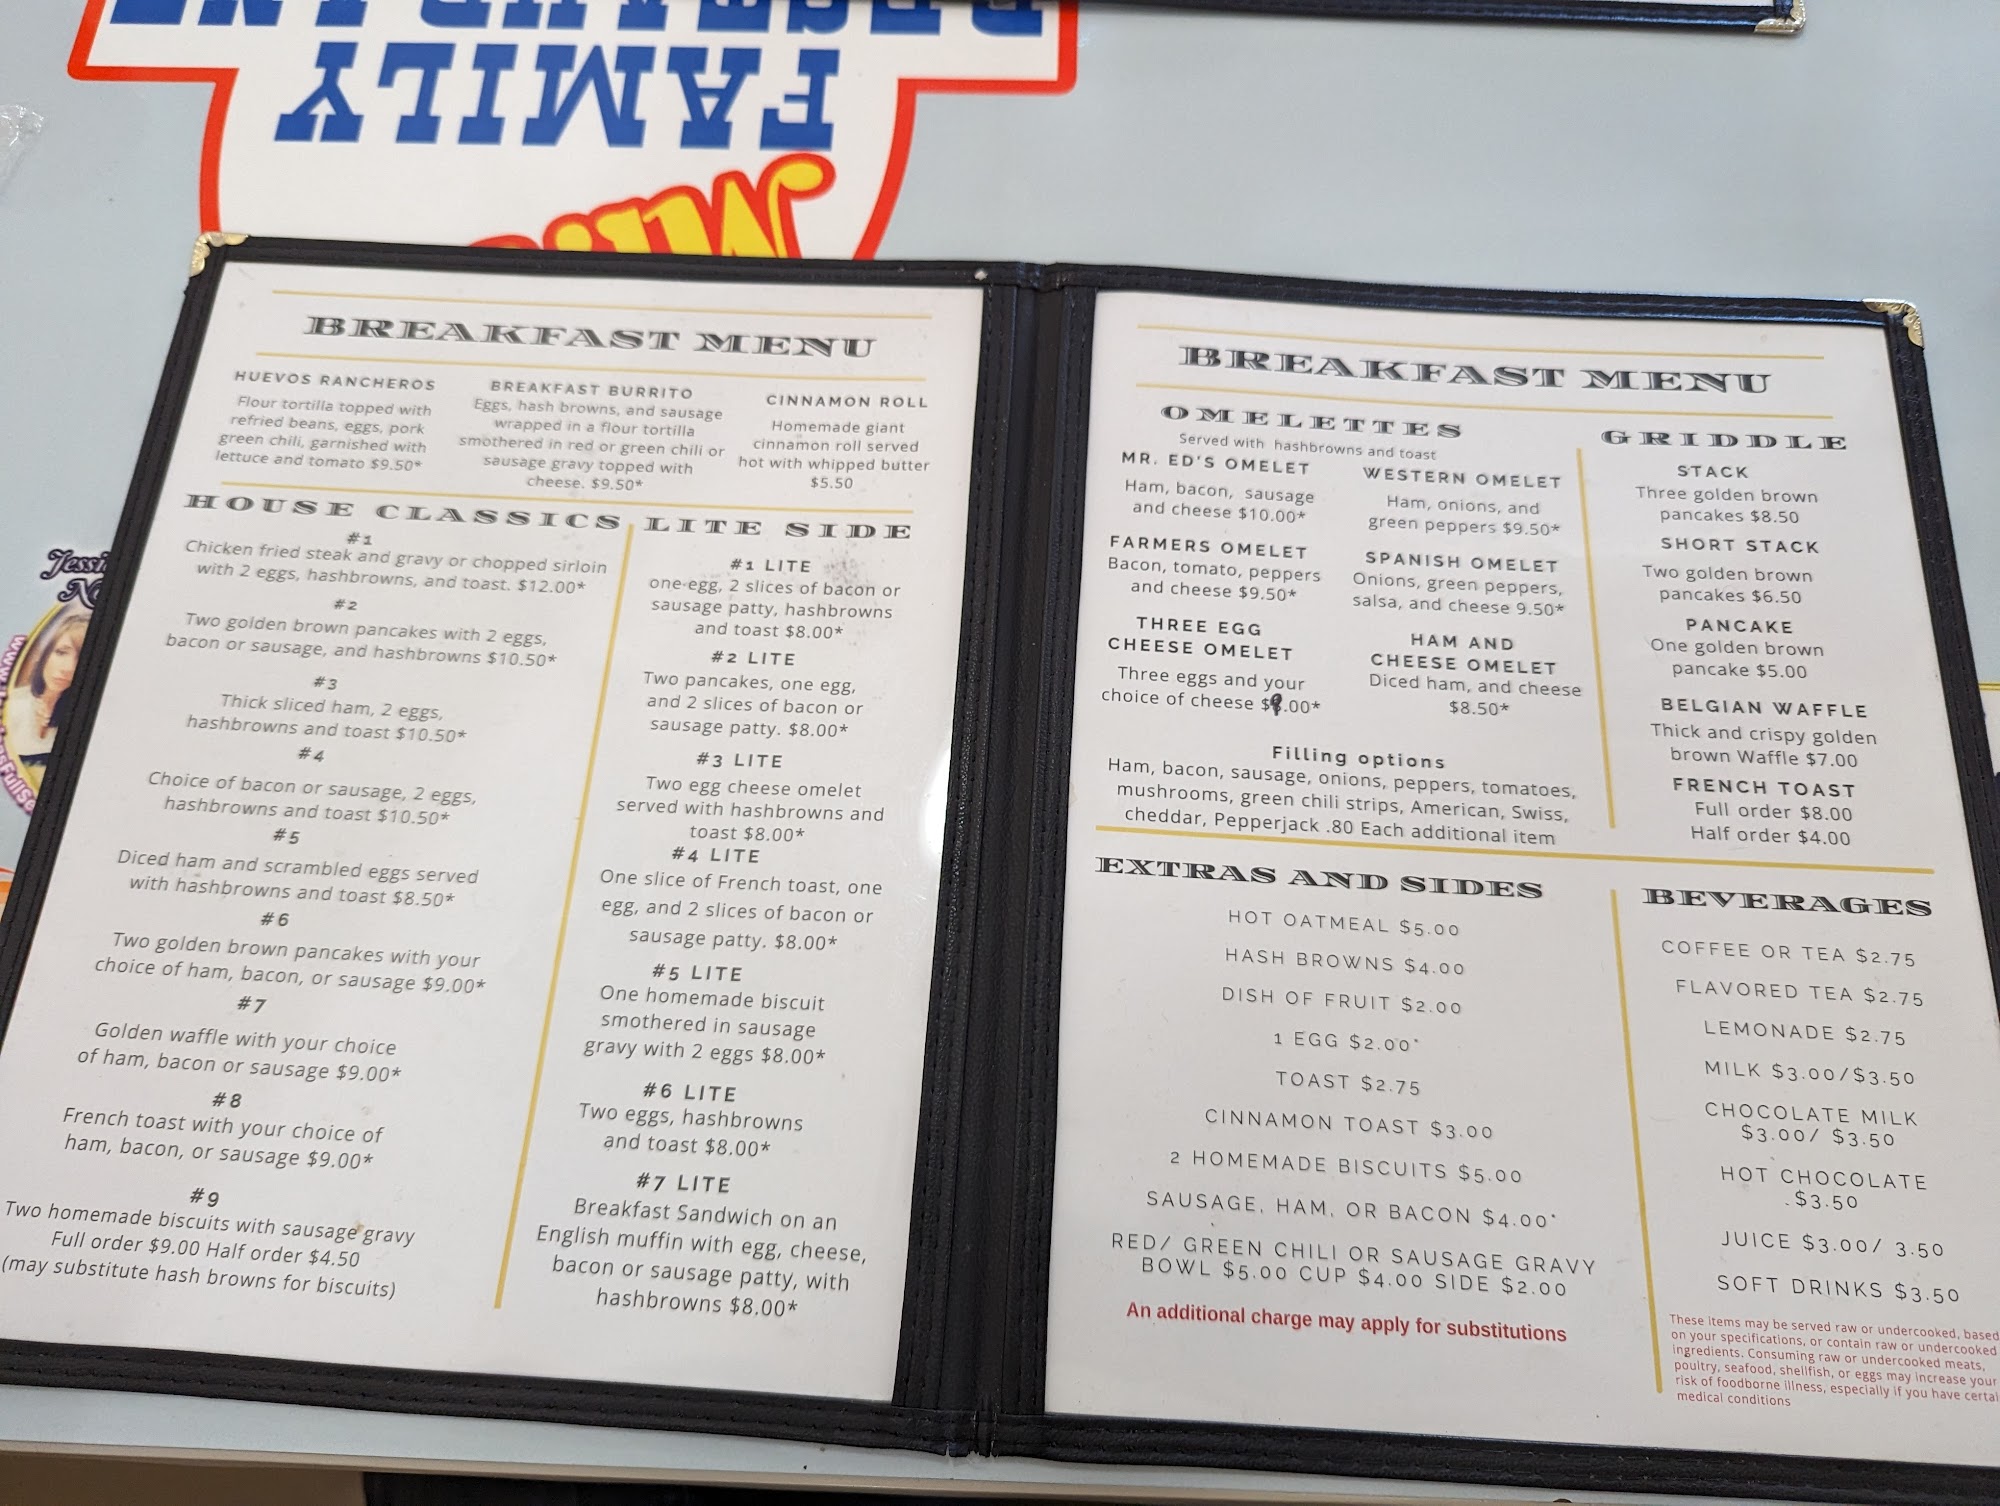 RESTAURANT
FAMILY
BREAKFAST MENU
HUEVOS RANCHEROS
Flour tortilla topped with
refried beans, eggs, pork
green chili, garnished with
lettuce and tomato $9.50*
BREAKFAST BURRITO
Eggs, hash browns, and sausage
wrapped in a flour tortilla
smothered in red or green chili or
sausage gravy topped with
cheese. $9.50*
CINNAMON ROLL
Homemade giant
cinnamon roll served
hot with whipped butter
$5.50
HOUSE CLASSICS
#1
Chicken fried steak and gravy or chopped sirloin
with 2 eggs, hashbrowns, and toast. $12.00*
#2
Two golden brown pancakes with 2 eggs,
bacon or sausage, and hashbrowns $10.50*
#3
Thick sliced ham, 2 eggs,
hashbrowns and toast $10.50*
#4
Choice of bacon or sausage, 2 eggs,
hashbrowns and toast $10.50*
#5
Diced ham and scrambled eggs served
with hashbrowns and toast $8.50*
#6
Two golden brown pancakes with your
choice of ham, bacon, or sausage $9.00*
#7
Golden waffle with your choice
of ham, bacon or sausage $9.00*
#8
French toast with your choice of
ham, bacon, or sausage $9.00*
#9
Two homemade biscuits with sausage gravy
Full order $9.00 Half order $4.50
(may substitute hash browns for biscuits)
LITE SIDE
#1 LITE
one egg, 2 slices of bacon or
sausage patty, hashbrowns
and toast $8.00*
#2 LITE
Two pancakes, one egg,
and 2 slices of bacon or
sausage patty. $8.00*
#3 LITE
Two egg cheese omelet
served with hashbrowns and
toast $8.00*
#4 LITE
One slice of French toast, one
egg, and 2 slices of bacon or
sausage patty. $8.00*
#5 LITE
One homemade biscuit
smothered in sausage
gravy with 2 eggs $8.00*
#6 LITE
Two eggs, hashbrowns
and toast $8.00*
#7 LITE
Breakfast Sandwich on an
English muffin with egg, cheese,
bacon or sausage patty, with
hashbrowns $8.00*
BREAKFAST MENU
OMELETTES
Served with hashbrowns and toast
MR. ED'S OMELET
Ham, bacon, sausage
and cheese $10.00*
WESTERN OMELET
Ham, onions, and
green peppers $9.50*
FARMERS OMELET
Bacon, tomato, peppers
and cheese $9.50*
SPANISH OMELET
Onions, green peppers,
salsa, and cheese 9.50*
THREE EGG
CHEESE OMELET
Three eggs and your
choice of cheese $9.00*
HAM AND
CHEESE OMELET
Diced ham, and cheese
$8.50*
Filling options
Ham, bacon, sausage, onions, peppers, tomatoes,
mushrooms, green chili strips, American, Swiss,
cheddar, Pepperjack .80 Each additional item
GRIDDLE
STACK
Three golden brown
pancakes $8.50
SHORT STACK
Two golden brown
pancakes $6.50
PANCAKE
One golden brown
pancake $5.00
BELGIAN WAFFLE
Thick and crispy golden
brown Waffle $7.00
FRENCH TOAST
Full order $8.00
Half order $4.00
EXTRAS AND SIDES
HOT OATMEAL $5.00
HASH BROWNS $4.00
DISH OF FRUIT $2.00
1 EGG $2.00*
TOAST $2.75
CINNAMON TOAST $3.00
2 HOMEMADE BISCUITS $5.00
SAUSAGE, HAM, OR BACON $4.00*
RED/ GREEN CHILI OR SAUSAGE GRAVY
BOWL $5.00 CUP $4.00 SIDE $2.00
An additional charge may apply for substitutions
BEVERAGES
COFFEE OR TEA $2.75
FLAVORED TEA $2.75
LEMONADE $2.75
MILK $3.00/$3.50
CHOCOLATE MILK
$3.00/ $3.50
HOT CHOCOLATE
$3.50
JUICE $3.00/ 3.50
SOFT DRINKS $3.50
These items may be served raw or undercooked, based
on your specifications, or contain raw or undercooked
ingredients. Consuming raw or undercooked meats,
poultry, seafood, shellfish, or eggs may increase your
risk of foodborne illness, especially if you have certai
medical conditions